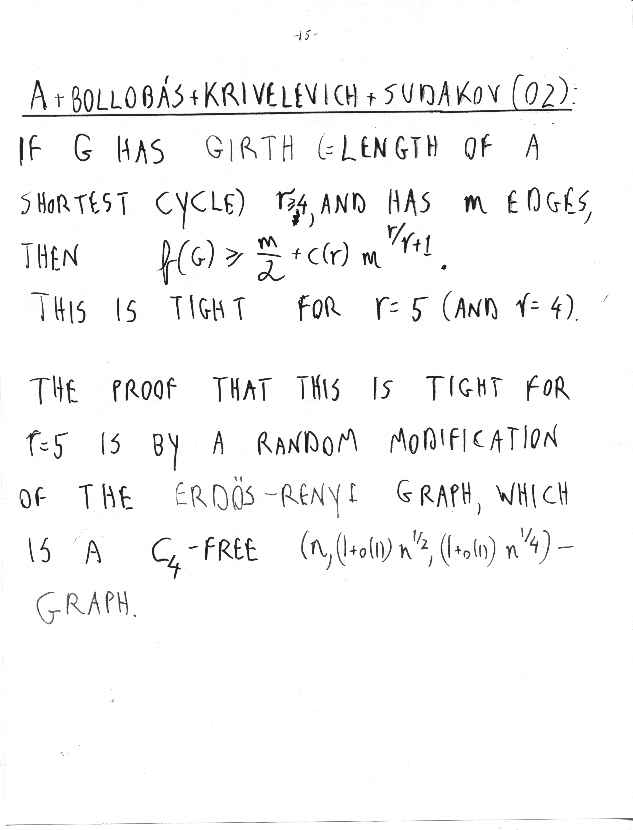 -15-
A+BOLLOBÁS+KRIVELEVICH+SUDAKOV (02):
IF G HAS GIRTH (=LENGTH OF A
SHORTEST CYCLE) r≥4, AND HAS m EDGES,
THEN f(G) ≥ m/2 + c(r) m^{r/r+1}.
THIS IS TIGHT FOR r=5 (AND r=4).
THE PROOF THAT THIS IS TIGHT FOR
r=5 IS BY A RANDOM MODIFICATION
OF THE ERDŐS-RENYI GRAPH, WHICH
IS A C₄-FREE (n, (1+o(1)) n^{1/2}, (1+o(1)) n^{1/4})-
GRAPH.